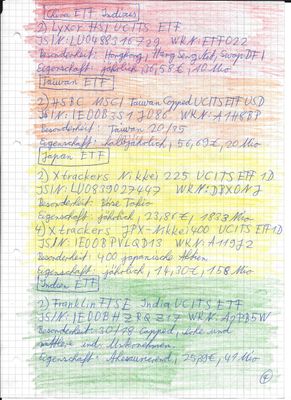 China ETF Indizes
2) Lyxor HSI UCITS ETF
JSIN: LU0488316729 WKN: ETF022
Besonderheit: Hongkong, Hang Seng Net,
Eigenschaft: jährlich, 36,58€, 10 Mio
Taiwan ETF
2) HSBC MSCI Taiwan Capped UCITS ETF USD
JSIN: IE00B3S1J086 WKN: A1H8BP
Besonderheit: Taiwan 20/35
Eigenschaft: halbjährlich, 56,69€, 20 Mio
Japan ETF
2) Xtrackers Nikkei 225 UCITS ETF 1D
JSIN: LU0839027447 WKN: DBX0NJ
Besonderheit: Börse Tokio
Eigenschaft: jährlich, 23,86€, 1833 Mio
4) Xtrackers JPX-Nikkei 400 UCITS ETF 1D
JSIN: IE00BPVLQD13 WKN: A119J2
Besonderheit: 400 japanische Aktien
Eigenschaft: jährlich, 14,30€, 158 Mio
Indien ETF
2) Franklin FTSE India UCITS ETF
JSIN: IE00BHZRQZ17 WKN: A2PB5W
Besonderheit: 30/18 Capped, hohe und
mittlere ind. Unternehmen.
Eigenschaft: Akkumulierend, 25,89€, 41 Mio